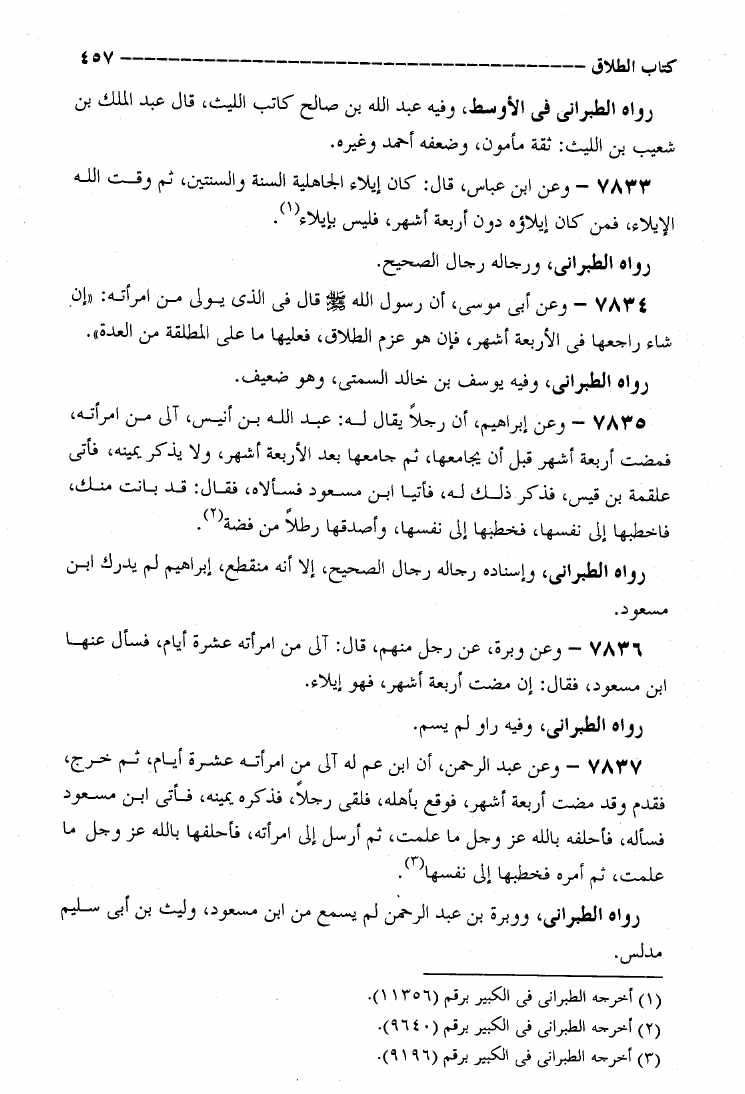 كتاب الطلاق ---------------------------------------- ٤٥٧
رواه الطبرانى فى الأوسط، وفيه عبد الله بن صالح كاتب الليث، قال عبد الملك بن
شعيب بن الليث: ثقة مأمون، وضعفه أحمد وغيره.
٧٨٣٣ – وعن ابن عباس، قال: كان إيلاء الجاهلية السنة والسنتين، ثم وقت اللـه
الإيلاء، فمن كان إيلاؤه دون أربعة أشهر، فليس بإيلاء(١).
رواه الطبرانى، ورجاله رجال الصحيح.
٧٨٣٤ – وعن أبى موسى، أن رسول الله ﷺ قال فى الذى يـولى مـن امرأتـه: «إن
شاء راجعها فى الأربعة أشهر، فإن هو عزم الطلاق، فعليها ما على المطلقة من العدة».
رواه الطبرانى، وفيه يوسف بن خالد السمتى، وهو ضعيف.
٧٨٣٥ – وعن إبراهيم، أن رجلاً يقال لـه: عبـد اللـه بـن أنيـس، آلى مـن امرأتـه،
فمضت أربعة أشهر قبل أن يجامعها، ثم جامعها بعد الأربعة أشهر، ولا يذكر يمينه، فأتى
علقمة بن قيس، فذكر ذلـك لـه، فأتيـا ابـن مسـعود فسـألاه، فقـال: قـد بـانت منـك،
فاخطبها إلى نفسها، فخطبها إلى نفسها، وأصدقها رطلاً من فضة(٢).
رواه الطبرانى، وإسناده رجاله رجال الصحيح، إلا أنه منقطع، إبراهيم لم يدرك ابـن
مسعود.
٧٨٣٦ – وعن وبرة، عن رجل منهم، قال: آلى من امرأته عشرة أيام، فسأل عنهـا
ابن مسعود، فقال: إن مضت أربعة أشهر، فهو إيلاء.
رواه الطبرانى، وفيه راو لم يسم.
٧٨٣٧ – وعن عبد الرحمن، أن ابن عم له آلى من امرأتـه عشـرة أيـام، ثـم خـرج،
فقدم وقد مضت أربعة أشهر، فوقع بأهله، فلقى رجلاً، فذكره يمينه، فـأتى ابـن مسـعود
فسأله، فأحلفه بالله عز وجل ما علمت، ثم أرسل إلى امرأته، فأحلفها بالله عز وجل ما
علمت، ثم أمره فخطبها إلى نفسها(٣).
رواه الطبرانى، ووبرة بن عبد الرحمن لم يسمع من ابن مسعود، وليث بن أبى سـليم
مدلس.
(١) أخرجه الطبرانى فى الكبير برقم (١١٣٥٦).
(٢) أخرجه الطبرانى فى الكبير برقم (٩٦٤٠).
(٣) أخرجه الطبرانى فى الكبير برقم (٩١٩٦).